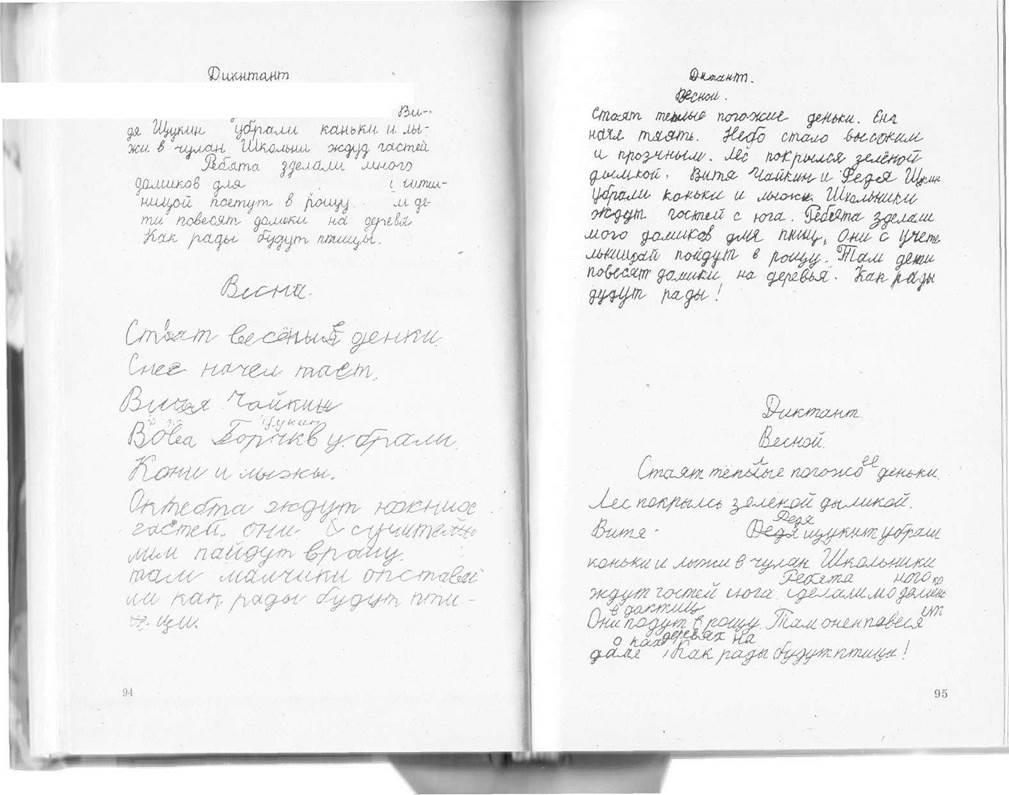 Дикнтант
Ви-
дя Щукин убрали каньки и лы-
жи в чулан Школьни ждуд гастей
Ребята зделали много
домиков для с читил-
ницой поетут в рощу. м де-
ти повесят домики на деревя
Как рады будут птицы.
Весна.
Стоят весёные денки.
Снее начел таст.
Витя Чайкин
Вова убрали.
Кони и лыжы.
ждут южних
гастей. они с сучител
ми пайдут в рощу.
там малчики опставяй
ли как рады будут пти-
ци.
94
Диктант.
Весной.
Стоят теплые погожие деньки. Ене
наче таять. Небо стало высоким
и прозчным. Лес покрылся зелёной
дымкой. Витя Чайкин и Федя Щукин
убрали коньки и лыжи. Школьники
ждут гостей с юга. Ребята зделали
мого домиков для пниц. Они с учете
льницай пойдут в рощу. Там дети
повесят домики на деревья. Как рады
дудут рады!
Диктант
Весной.
Стаят теплые погожо ее деньки.
Лес покрылсь зелёной дымикой.
Федя
Витя - Федя щукинт убрали
каньки и лыжи в чулан Школьники
Ребята ного
ждут гостей сюга. сделали мо домикн
в дактиц
Они подут в рощу. Там онен повеся ит
о как деревях на
даме , Как рады будут птицы!
95